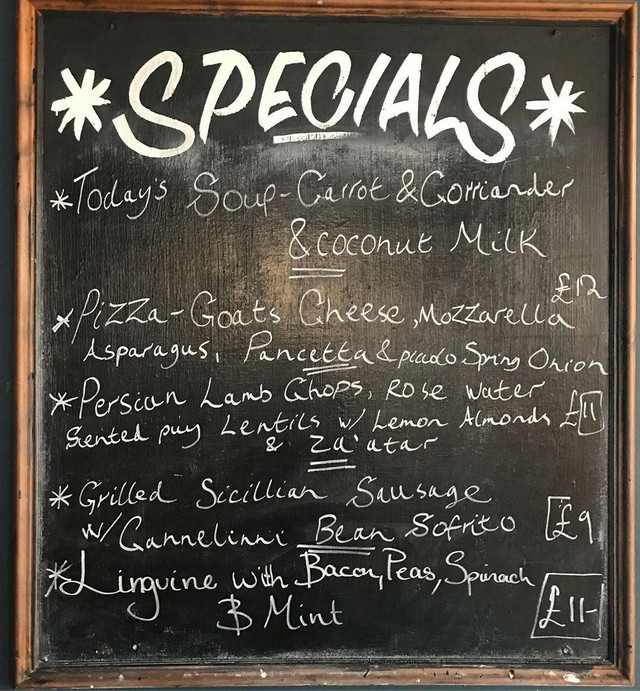 *SPECIALS*
*Today's Soup-Carrot & Corriander
& coconut Milk
£12
*Pizza-Goats Cheese, Mozzarella
Asparagus, Pancetta & picado Spring Onion
*Persian Lamb Chops, Rose water
Scented puy Lentils w/ Lemon Almonds £11
& Za'atar
*Grilled Sicillian Sausage
w/ Cannelinni Bean Sofrito £9
*Linguine with Bacon, Peas, Spinach
& Mint £11-